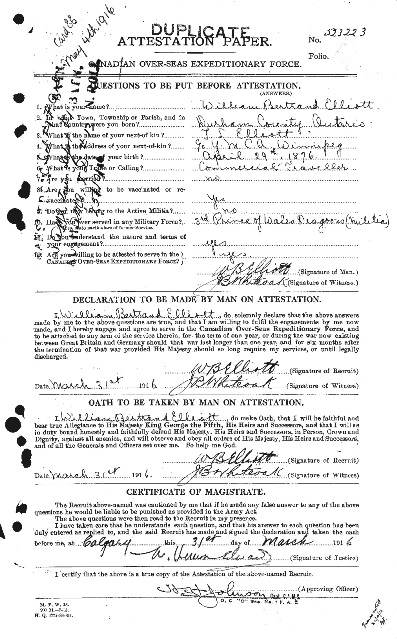 DUPLICATE
ATTESTATION PAPER.
No.
Folio.
CANADIAN OVER-SEAS EXPEDITIONARY FORCE.
QUESTIONS TO BE PUT BEFORE ATTESTATION.
(ANSWERS)
1. What is your name? William Bertrand Elliott
2. In what Town, Township or Parish, and in what Country were you born? Durham County Ontario
3. What is the name of your next-of-kin? Elliott
4. What is the address of your next-of-kin? Y.M.C.A. Winnipeg
5. What is the date of your birth? April 29th 1876
6. What is your Trade or Calling? Commercial Traveller
7. Are you married? no
8. Are you willing to be vaccinated or re-vaccinated? Yes
9. Do you now belong to the Active Militia? no
10. Have you ever served in any Military Force? 3rd Prince of Wales Dragoons (Militia)
If so, state particulars of former Service.
11. Do you understand the nature and terms of your engagement? yes
12. Are you willing to be attested to serve in the CANADIAN OVER-SEAS EXPEDITIONARY FORCE? yes
W B Elliott (Signature of Man.)
J B Whiteoak (Signature of Witness.)
DECLARATION TO BE MADE BY MAN ON ATTESTATION.
I, William Bertrand Elliott, do solemnly declare that the above answers
made by me to the above questions are true, and that I am willing to fulfil the engagements by me now
made, and I hereby engage and agree to serve in the Canadian Over-Seas Expeditionary Force, and
to be attached to any arm of the service therein, for the term of one year, or during the war now existing
between Great Britain and Germany should that war last longer than one year, and for six months after
the termination of that war provided His Majesty should so long require my services, or until legally
discharged.
W B Elliott (Signature of Recruit)
Date March 31st 1916 J B Whiteoak (Signature of Witness)
OATH TO BE TAKEN BY MAN ON ATTESTATION.
I, William Bertrand Elliott, do make Oath, that I will be faithful and
bear true Allegiance to His Majesty King George the Fifth, His Heirs and Successors, and that I will as
in duty bound honestly and faithfully defend His Majesty, His Heirs and Successors, in Person, Crown and
Dignity, against all enemies, and will observe and obey all orders of His Majesty, His Heirs and Successors,
and of all the Generals and Officers set over me. So help me God.
W B Elliott (Signature of Recruit)
Date March 31st 1916 J B Whiteoak (Signature of Witness)
CERTIFICATE OF MAGISTRATE.
The Recruit above-named was cautioned by me that if he made any false answer to any of the above
questions he would be liable to be punished as provided in the Army Act.
The above questions were then read to the Recruit in my presence.
I have taken care that he understands each question, and that his answer to each question has been
duly entered as replied to, and the said Recruit has made and signed the declaration and taken the oath
before me, at Calgary this 31st day of March 1916
(Signature of Justice)
I certify that the above is a true copy of the Attestation of the above-named Recruit.
Johnson (Approving Officer)
M. F. W. 23.